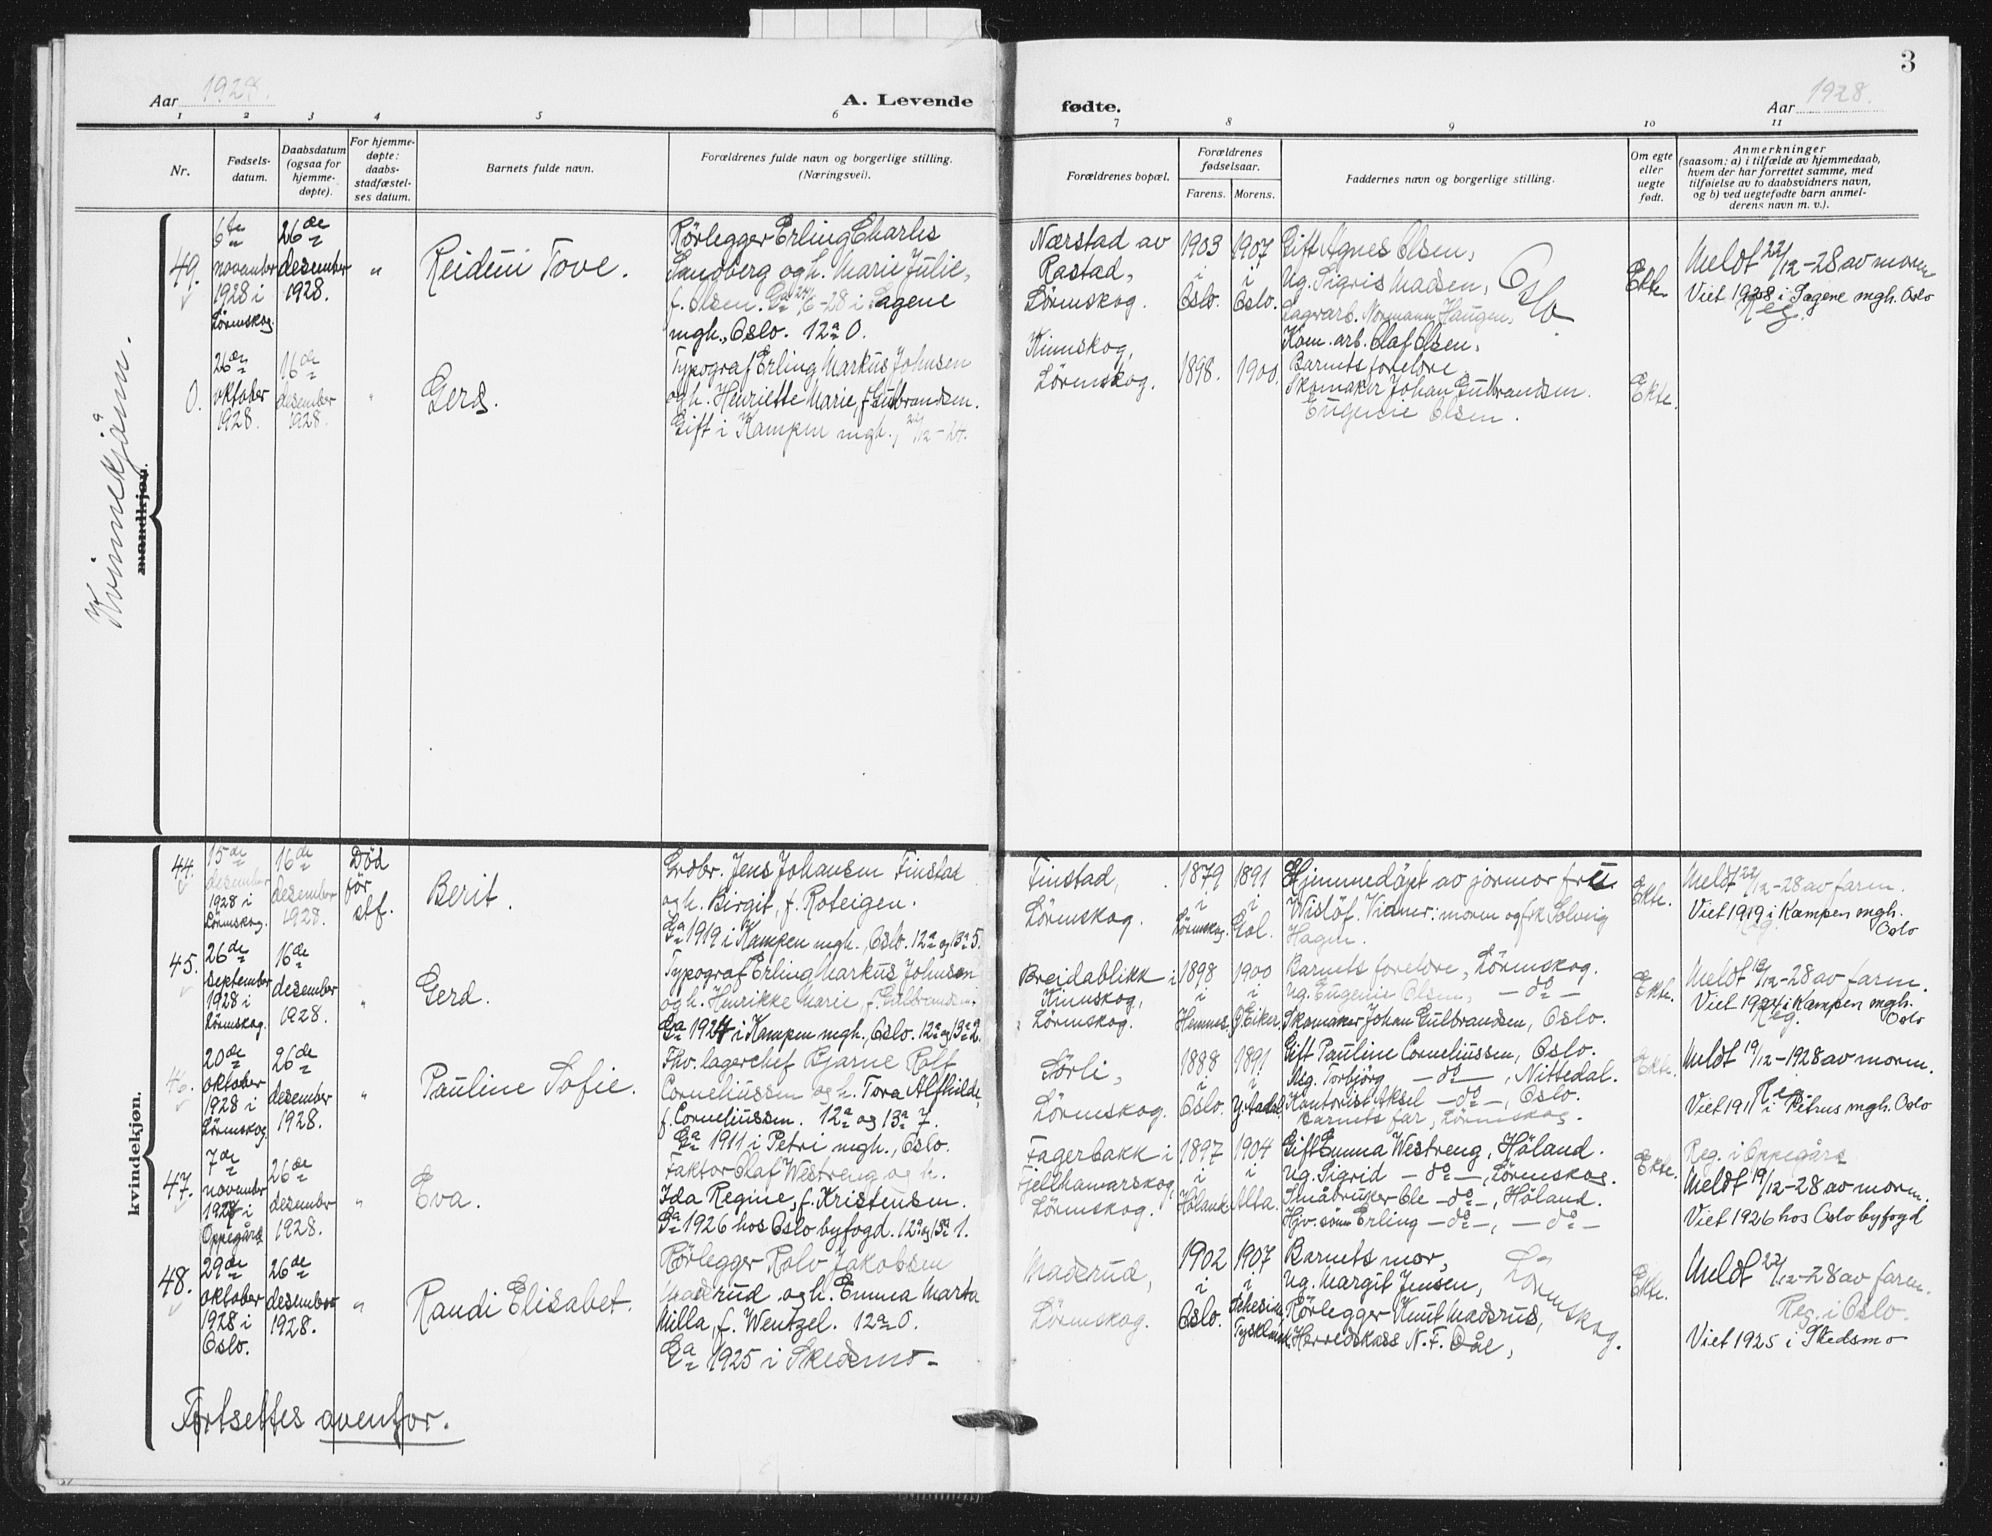 3
Aar 1928.
A. Levende fødte.
Aar 1928.
1 2 3 4 5 6 7 8 9 10 11
Nr.
Fødsels-
datum.
Daabsdatum
(ogsaa for
hjemme-
døpte).
For hjemme-
døpte:
daabs-
stadfæstel-
ses datum.
Barnets fulde navn.
Forældrenes fulde navn og borgerlige stilling.
(Næringsvei).
Forældrenes bopæl.
Forældrenes
fødselsaar.
Farens. Morens.
Faddernes navn og borgerlige stilling.
Om egte
eller
uegte
født.
Anmerkninger
(saasom: a) i tilfælde av hjemmedaab,
hvem der har forrettet samme, med
tilføielse av to daabsvidners navn,
og b) ved uegtefødte barn anmel-
derens navn m. v.).
Kvinnekjønn.
mandkjøn.
49.
6te
november
1928 i
Lørenskog.
26de
desember
1928.
"
Reidun Tove.
Rørlegger Erling Charles
Sandberg og h. Marie Julie,
f. Olsen. Ga 6-28 i Sagene
mgh., Oslo. 12a 0.
Nærstad av
Rastad,
Lørenskog.
1903
i
Oslo.
1907
i
Oslo.
Gift Agnes Olsen,
Ug. Sigris Madsen,
Lagerarb. Normann Haugen,
Kom. arb. Olaf Olsen,
Oslo
Ekte
Meldt 22/12-28 av moren
Viet 1928 i Sagene mgh. Oslo
Reg.
0.
26de
oktober
1928.
16de
desember
1928.
"
Gerd.
Typograf Erling Markus Johnsen
og h. Henriette Marie, f. Gulbrandsen.
Gift i Kampen mgh.,
Kinnskog,
Lørenskog.
1898.
1900.
Barnets foreldre,
Skomaker Johan Gulbrandsen.
Eugenie Olsen.
Ekte.
kvindekjøn.
44.
15de
desember
1928 i
Lørenskog.
16de
desember
1928.
Død
før
stf.
Berit.
Grdbr. Jens Johansen Finstad
og h. Birgit, f. Roteigen.
Ga 1919 i Kampen mgh., Oslo. 12a og 13a 5.
Finstad,
Lørenskog.
1879
i
Lørenskog.
1891
i
Gol.
Hjemmedøpt av jormor fru
Wisløf. Vidner: moren og frk Solveig
Hagen.
Ekte.
Meldt 22/12-28 av faren.
Viet 1919 i Kampen mgh.
Reg. Oslo
45.
26de
september
1928 i
Lørenskog.
16de
desember
1928.
"
Gerd.
Typograf Erling Markus Johnsen
og h. Henrikke Marie, f. Gulbrandsen.
Ga 1924 i Kampen mgh., Oslo. 12a og 13a 2.
Breidablikk i
Kinnskog,
Lørenskog.
1898
i
Hemnes.
1900
i
Ø. Eiker.
Barnets foreldre, Lørenskog.
Ug. Eugenie Olsen, — do —
Skomaker Johan Gulbrandsen, Oslo.
Ekte.
Meldt 19/12-28 av faren.
Viet 1924 i Kampen mgh.
Reg. Oslo
46.
20de
oktober
1928 i
Lørenskog.
26de
desember
1928.
"
Pauline Sofie.
Fhv. lagerchef Bjarne Rolf
Corneliussen og h. Tora Alfhilde,
f. Corneliussen. 12a og 13a 7.
Ga 1911 i Petri mgh., Oslo.
Sørli,
Lørenskog.
1888
i
Oslo.
1891
i
Gift Pauline Corneliussen, Oslo.
Ug. Torbjørg — do —, Nittedal.
Kontorist Aksel — do —, Oslo.
Barnets far, Lørenskog.
Ekte.
Meldt 19/12-1928 av moren.
Reg.
Viet 1911 i Petrus mgh. Oslo
47.
7de
november
1928 i
Oppegård
26de
desember
1928.
"
Eva.
Faktor Olaf Westreng og h.
Ida Regine, f. Kristensen.
Ga 1926 hos Oslo byfogd. 12a og 13a 1.
Fagerbakk i
Fjellhamarskog,
Lørenskog.
1897
i
Høland.
1904
i
Alta.
Gift Emma Westreng, Høland.
Ug. Sigrid — do —, Lørenskog.
Småbruker Ole — do —, Høland.
Hjv. sønn Erling — do —, — do —
Ekte.
Reg. i Oppegård
Meldt 19/12-28 av moren.
Viet 1926 hos Oslo byfogd
48.
29de
oktober
1928 i
Oslo.
26de
desember
1928.
"
Randi Elisabet.
Rørlegger Rolv Jakobsen
Madsrud og h. Emma Marta
Milla, f. Wentzel. 12a 0.
Ga 1925 i Skedsmo —
Madsrud,
Lørenskog.
1902
i
Oslo.
1907
i
Barnets mor,
Ug. Margit Jensen,
Rørlegger Knut Madsrud,
Herredskass N. F. Dåe,
Lørenskog.
Ekte.
Meldt 22/12-28 av faren.
Reg. i Oslo.
Viet 1925 i Skedsmo
Fortsettes ovenfor.